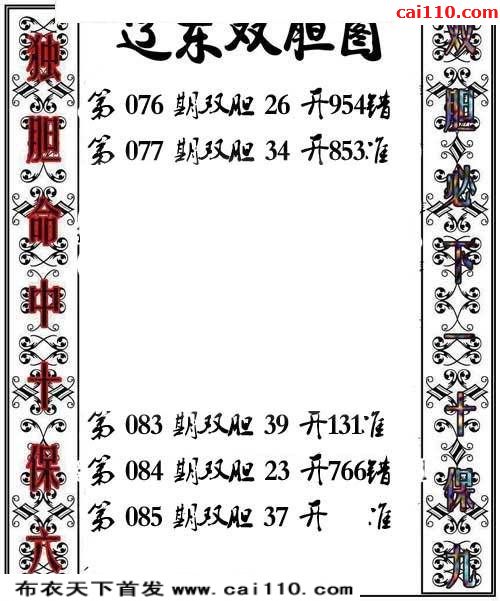 cai110.com
辽东双胆图
独胆命中十保六
第 076 期双胆 26 开954错
第 077 期双胆 34 开853准
第 083 期双胆 39 开131准
第 084 期双胆 23 开766错
第 085 期双胆 37 开 准
双胆必下一十保九
布衣天下首发 www.cai110.com